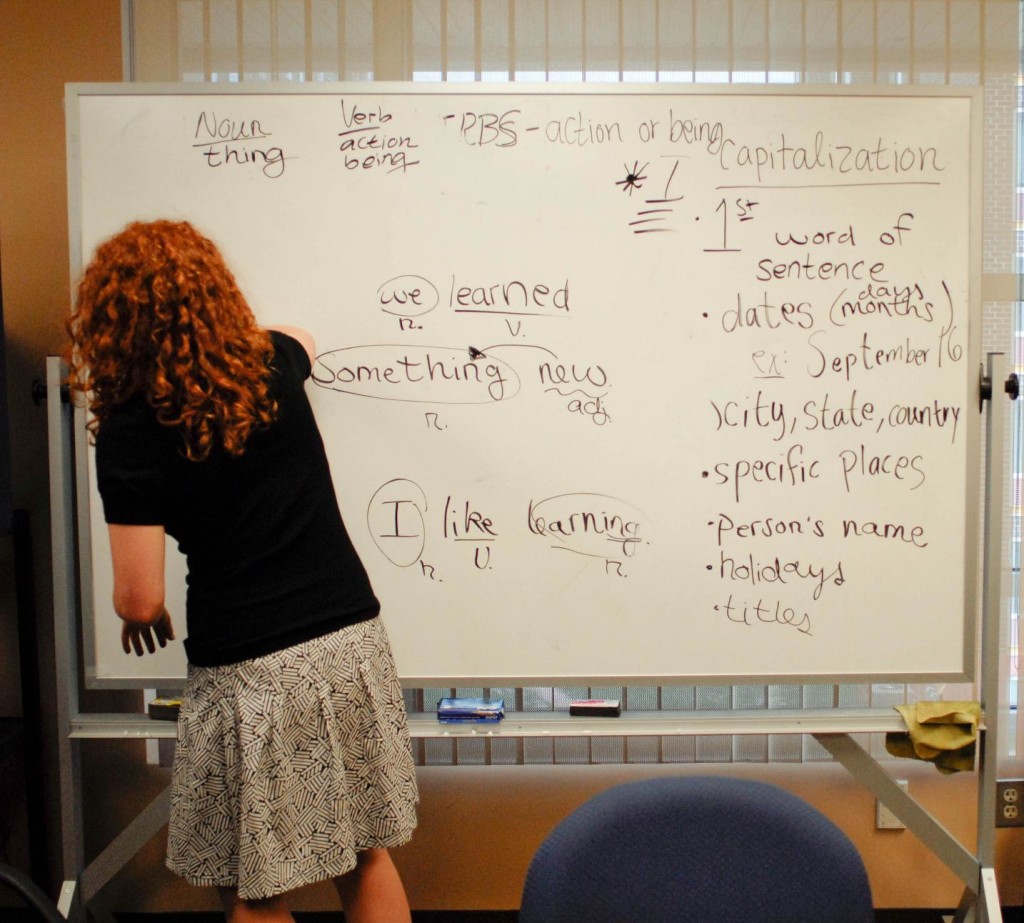 Noun
thing
Verb
action
being
RBS - action or being
Capitalization
* I
• 1st
word of
sentence
• dates (months days)
ex: September 16
city, state, country
• specific places
• person's name
• holidays
• titles
we learned
n. v.
Something new
n. adj.
I like learning
n. v. n.